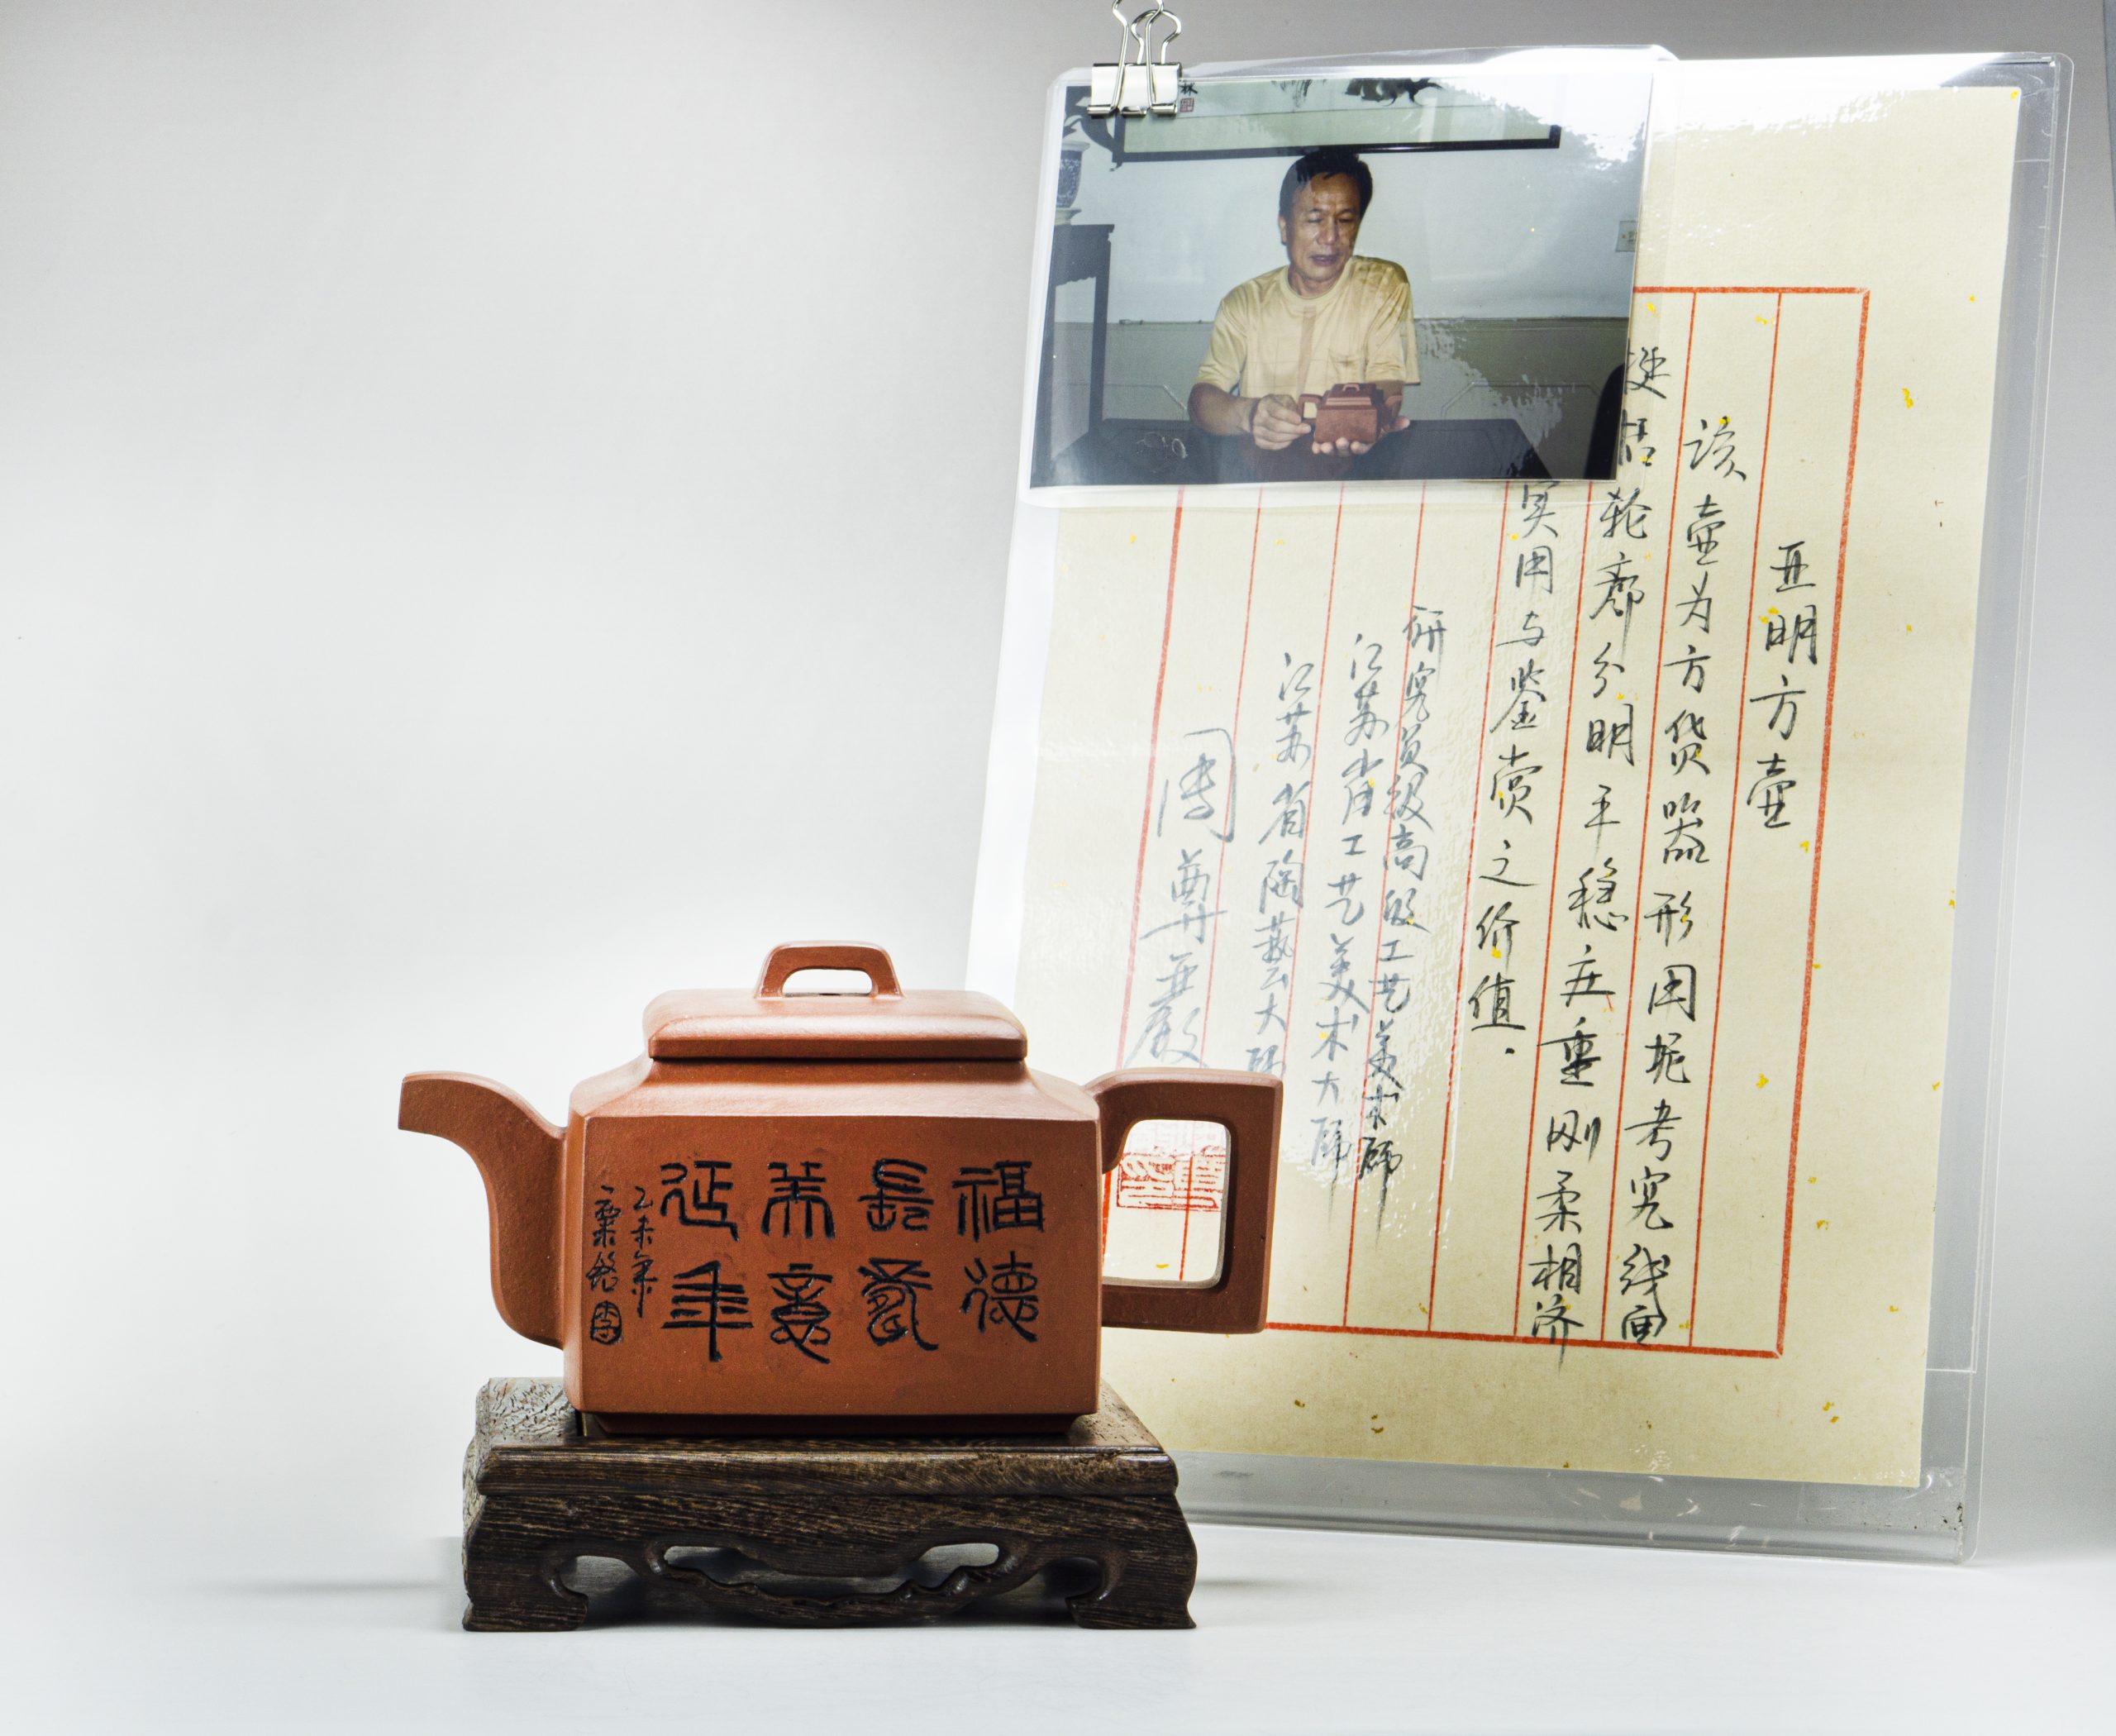 亚明方壶
该壶为方货器形用坭考究线面
挺括轮廓分明平稳庄重刚柔相济
实用与鉴赏之价值.
研究员级高级工艺美术师
江苏省工艺美术大师
江苏省陶藝大师
周尊严
福德
長壽
美意
延年
乙未年
一粟銘